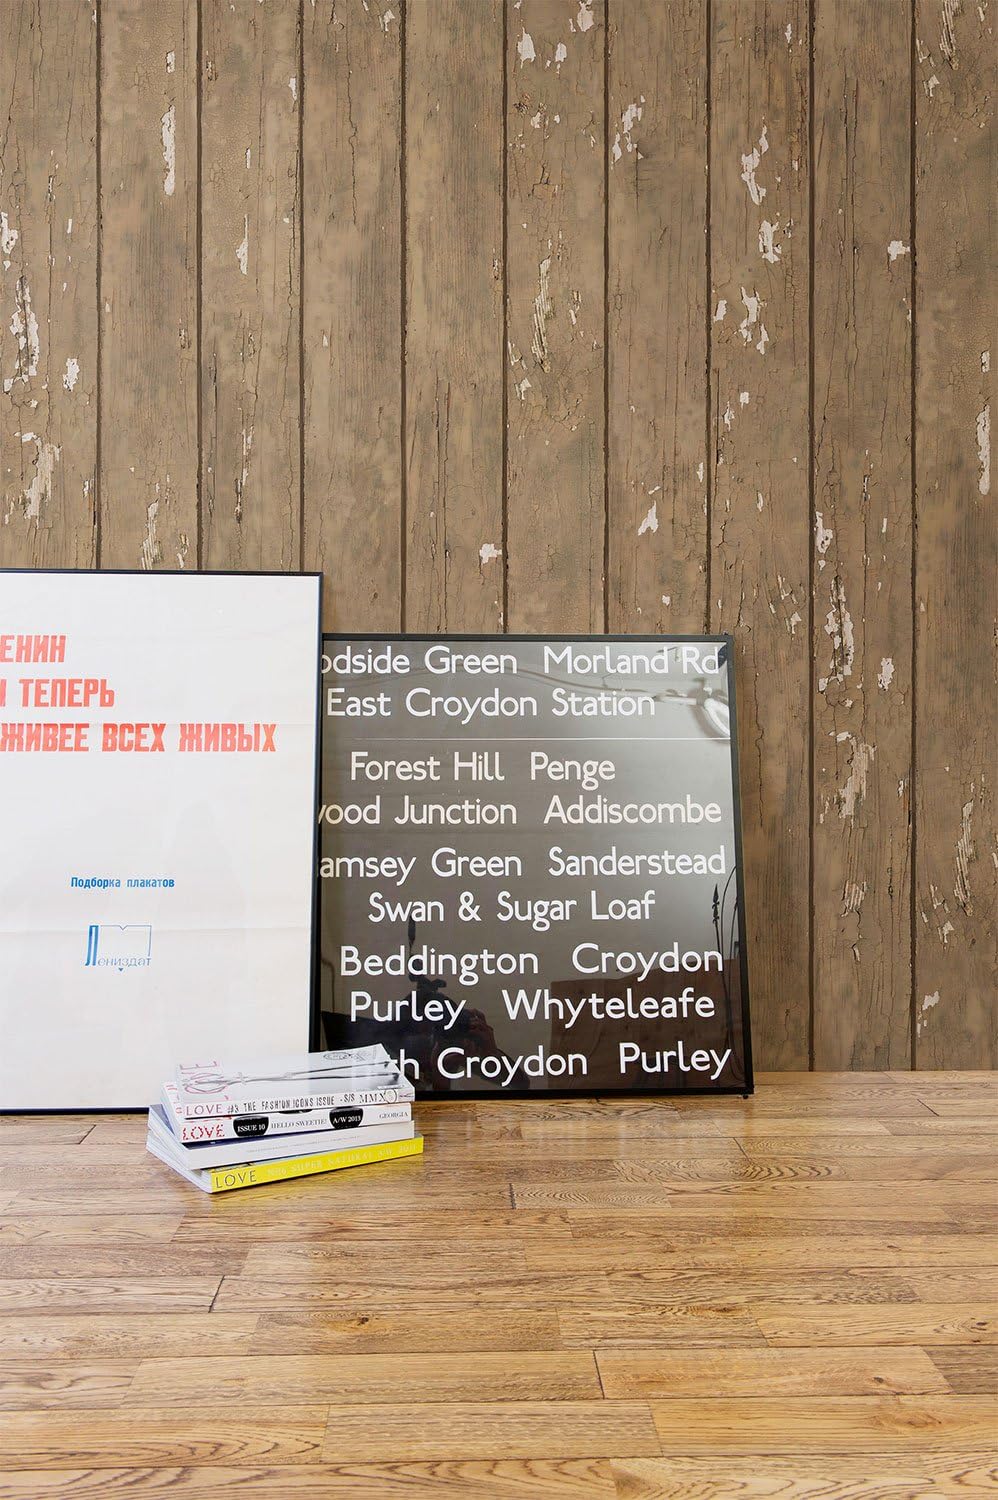 ЕНИН
И ТЕПЕРЬ
ЖИВЕЕ ВСЕХ ЖИВЫХ
Подборка плакатов
Лениздат
odside Green Morland Rd
East Croydon Station
Forest Hill Penge
wood Junction Addiscombe
amsey Green Sanderstead
Swan & Sugar Loaf
Beddington Croydon
Purley Whyteleafe
th Croydon Purley
LOVE
LOVE #3 THE FASHION ICONS ISSUE - S/S MMX
LOVE ISSUE 10 HELLO SWEETIE! A/W 2013 GEORGIA
LOVE SUPER NATURAL